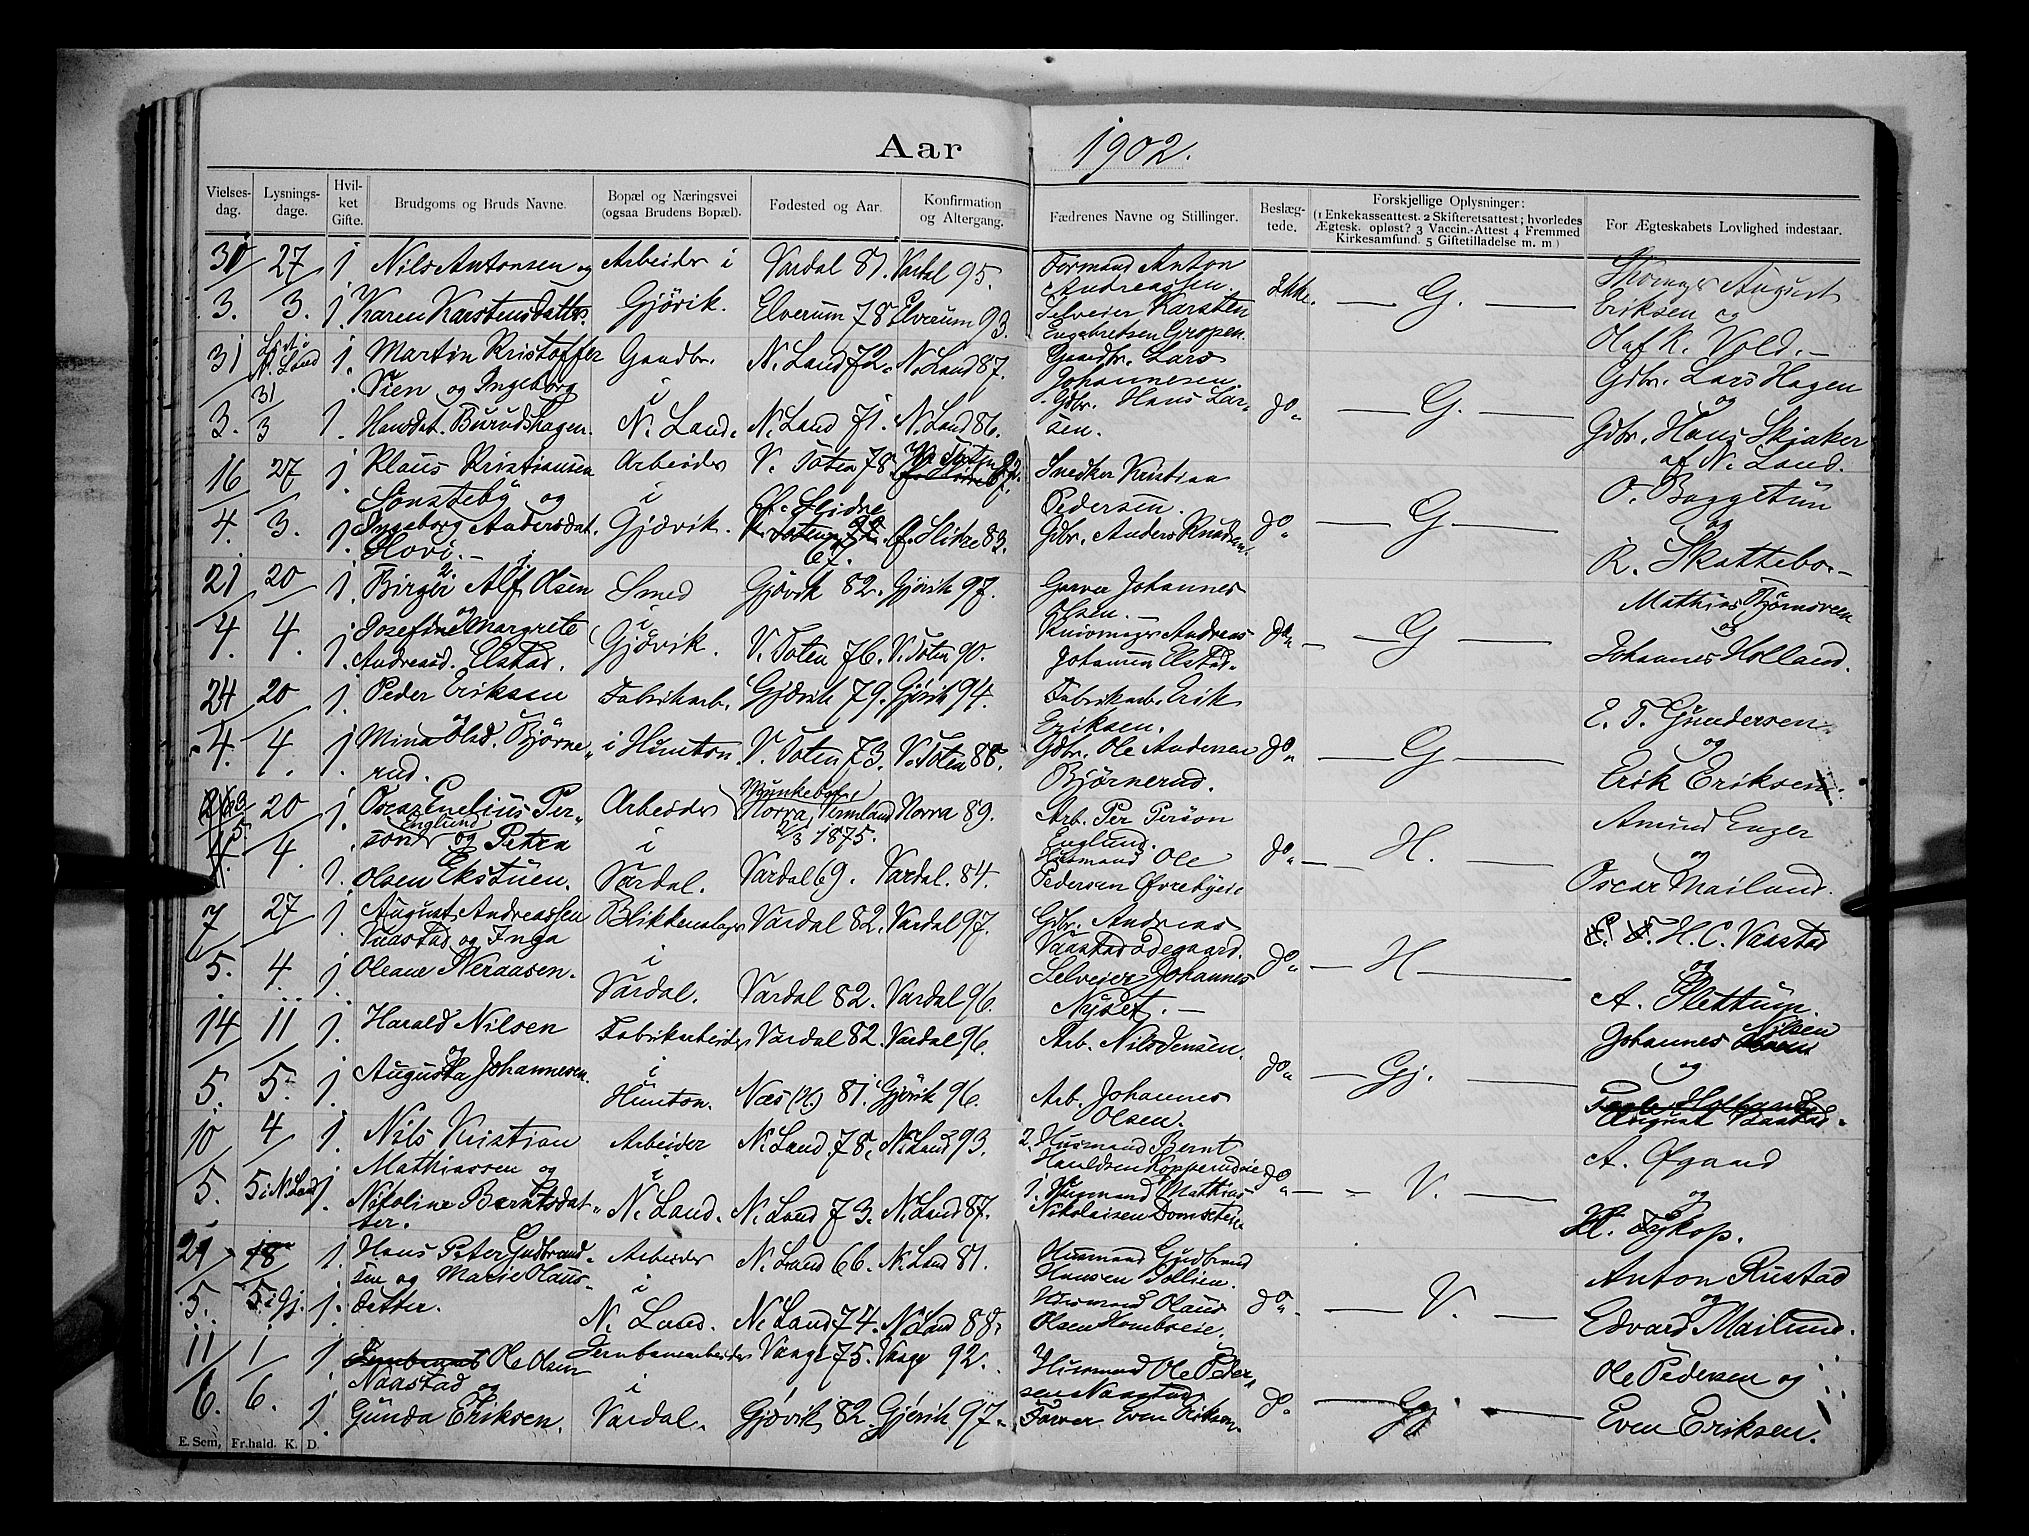 Aar 1902.
Vielses- dag. Lysnings- dage. Hvil- ket Gifte. Brudgoms og Bruds Navne. Bopæl og Næringsvei (ogsaa Brudens Bopæl). Fødested og Aar. Konfirmation og Altergang. Fædrenes Navne og Stillinger. Beslæg- tede. Forskjellige Oplysninger: (1 Enkekasseattest. 2 Skifteretsattest; hvorledes Ægtesk. opløst? 3 Vaccin.-Attest 4 Fremmed Kirkesamfund. 5 Giftetilladelse m. m) For Ægteskabets Lovlighed indestaar.
31 27 1. Nils Antonsen og Arbeider i Vardal 81. Vardal 95. Formand Anton
Andreassen. August
3. 3. 1. Karen Karstensdatter. Gjövik. Elverum 78. Elverum 93. Selveier Karsten Ikke. — G. — Eriksen og
Engebretsen Gropen. Olaf K. Vold. —
31 N. Land 1. Martin Kristoffer Gaardbr. N. Land 72. N. Land 87. Gaardbr. Lars
31 Sien og Ingeborg i Johannesen. Gdbr. Lars Hagen
3. 3 1. Hansdat. Burudshagen. N. Land. N. Land 71. N. Land 86. Gdbr. Hans Lar- do — G. — og
sen. Gdbr. Hans Skjaker
af N. Land.
16 27 1. Klaus Kristiansen Arbeider V. Toten 78. V. Toten Snedker Kristian
Sönsteby og i Ø. Slidre Pedersen. O. Baggetun
4. 3. 1. Ingeborg Andersdat. Gjövik. 67. Ø. Slidre 83. Gdbr. Anders Knudsen. do — G — og
Hovi. — R. Skattebo. —
21 20 1. Birger Alf Olsen Smed Gjövik 82. Gjövik 97. Garver Johannes
og i Olsen. — Mathias Bjørnsveen
4. 4. 1. Josefine Margrete Gjövik. V. Toten 76. V. Toten 90. Andreas do — G — og
Andreasd. Elstad. Johansen Elstad. Johannes Holland.
24 20 1. Peder Eriksen Fabrikarb. Gjövik 79. Gjövik 94. Fabrikarb. Erik
og Eriksen. E. T. Gundersen
4. 4. 1. Mina Olsd. Bjørne- i Hunton. V. Toten 73. V. Toten 88. Gdbr. Ole Andersen do — G — og
rud. Bjørnerud. Erik Eriksen.
20 1. Oscar Emelius Per- Arbeider Norra, Vermland Norra 89. Arb. Per Persson Amund Enger
son Englund og Petra i 2/3 1875. Englund.
4. 1. Olsen Ekstuen. Vardal. Vardal 69. Vardal. 84. Husmand Ole do — H. — og
Pedersen Øvrebyeie Oscar Mailund.
7 27 1. August Andreassen Blikkenslager Vardal 82. Vardal 97. Gdbr. Andreas
Vaastad og Inga i Vaastad Ødegaard. H. C. Vaastad
5. 4. 1. Oleane Neraasen. Vardal. Vardal 82. Vardal 96. Selveier Johannes do — H — og
Nyset. — A. Plettum.
14 11 1. Harald Nilsen Fabrikarbeider Vardal 82. Vardal 96. Arb. Nils Jensen. Johannes Nilsen
og i og
5. 5. 1. Augusta Johannesen. Hunton. Næs (H.) 81. Gjövik 96. Arb. Johannes do — Gj. —
Olsen. August Vaastad.
10 4 1. Nils Kristian Arbeider N. Land 78. N. Land 93. 2. Husmand Bernt
Mathiassen og i Haraldsen Kopperudeie A. Øgaard
5. 5 i N. Land 1. Nikoline Berntsdat- N. Land. N. Land 73. N. Land 87. 1. Husmand Mathias do — V. — og
ter. Nikolaisen H.
21 18 1. Hans Peter Gudbrand- Arbeider N. Land 66. N. Land 81. Husmand Gudbrand
sen og Marie Olaus- i Hansen Sollien. Anton Rustad
5. 5 i Gj. 1. datter. N. Land. N. Land 74. N. Land 88. Husmand Olaus do — V. — og
Olsen Edvard Mailund.
11 1 1. Ole Olsen Jernbanearbeider Vaage 75. Vaage 92. Husmand Ole Peder-
Naastad og i sen Naastad Ole Pedersen og
6. 6. 1. Gunda Eriksen. Vardal. Gjövik 82. Gjövik 97. Even Eriksen. do — Gj. — Even Eriksen.
E. Sem, Fr.hald. K. D.